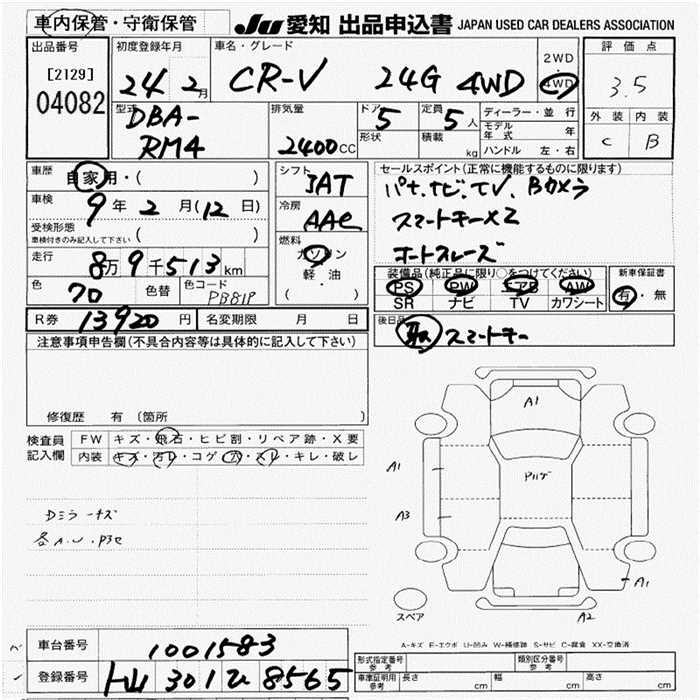 車内保管・守衛保管
JU 愛知 出品申込書 JAPAN USED CAR DEALERS ASSOCIATION
出品番号
[2129]
04082
初度登録年月
24 2月
車名・グレード
CR-V 24G 4WD
2WD
4WD
評価点
3.5
外装 内装
C B
型式
DBA-
RM4
排気量
2400cc
ドア 5
形状
定員 5人
積載 kg
ディーラー・並行
モデル年式 年
ハンドル 左・右
車歴
自家用・( )
車検
9年2月(12日)
受検形態
車検付きのみ記入して下さい ( )
走行
8万9千513km
色
70 色替
色コード
PB81P
R券 13920円 名変期限 月 日
シフト
冷房
AAC
燃料
ガソリン
軽・油
( )
セールスポイント(正常に機能するものに限ります)
ナビ、TV、Bカメラ
スマートキーX2
装備品(純正品に限り○をつけてください)
PS PW エアB AW
SR ナビ TV カワシート
新車保証書
有・無
後日品
取 スマートキー
注意事項申告欄(不具合内容等は具体的に記入して下さい)
修復歴 有 〔箇所
検査員記入欄
FW キズ・飛石・ヒビ割・リペア跡・X要
内装 キズ・汚レ・コゲ・穴・スレ・キレ・破レ
Dミラーキズ
各A.U.
A1
A1
A3
A1
A2
スペア
A-キズ E-エクボ U-凹み W-補修跡 S-サビ C-腐食 XX-交換済
車台番号 1001583
登録番号 301 ひ 8565
形式指定番号 参考
類別区分番号 参考
車庫証明用 参考 長さ cm 幅 cm 高さ cm